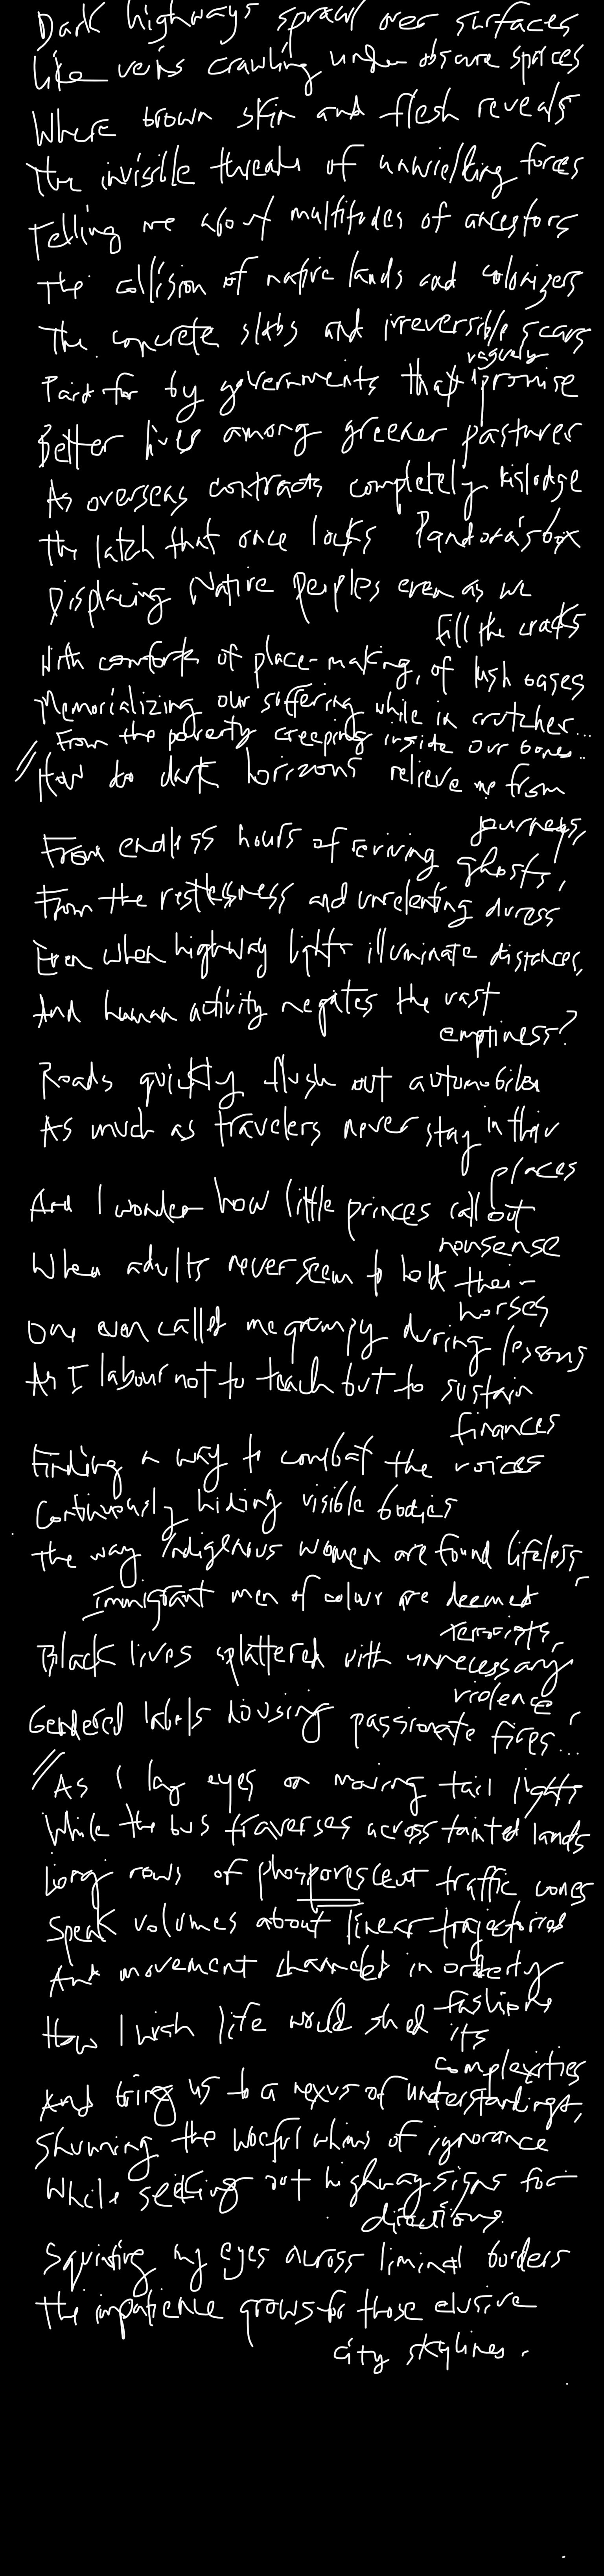 Dark highways sprawl over surfaces
like veins crawling under obscure spaces
Where brown skin and flesh reveals
The invisible threads of unwielding forces
Telling me about multitudes of ancestors
The collision of native lands and colonizers
The concrete slabs and irreversible scars
vaguely
Paid for by governments that promise
Better lives among greener pastures
As overseas contracts completely dislodge
The latch that once locks Pandora's box
Displacing Native peoples even as we
fill the cracks
With comforts of place-making, of lush oases
Memorializing our suffering while in
From the poverty creeping inside our bones...
// How do dark horizons relieve me from
journeys,
From endless hours of reviving ghosts,
From the restlessness and unrelenting duress
Even when highway lights illuminate distances,
And human activity negates the vast
emptiness?
Roads quickly flush out automobiles
As much as travelers never stay in their
places
And I wonder how little princes call out
nonsense
When adults never seem to hold their
horses
One even called me grumpy during lessons
As I labour not to teach but to sustain
finances
Finding a way to combat the voices
Continuously hiding visible bodies
The way Indigenous women are found lifeless,
immigrant men of colour are deemed
terrorists,
Black lives splattered with unnecessary
violence,
Gendered labels dousing passionate fires...
// As I lay eyes on moving tail lights
While the bus traverses across tainted lands
Long rows of phosporescent traffic cones
Speak volumes about linear trajectories
And movement channeled in orderly
fashions
How I wish life would shed its
complexities
And bring us to a nexus of understandings,
Shunning the woeful whims of ignorance
While seeking out highway signs for
directions.
Squinting my eyes across liminal borders
The impatience grows for those elusive
city skylines.